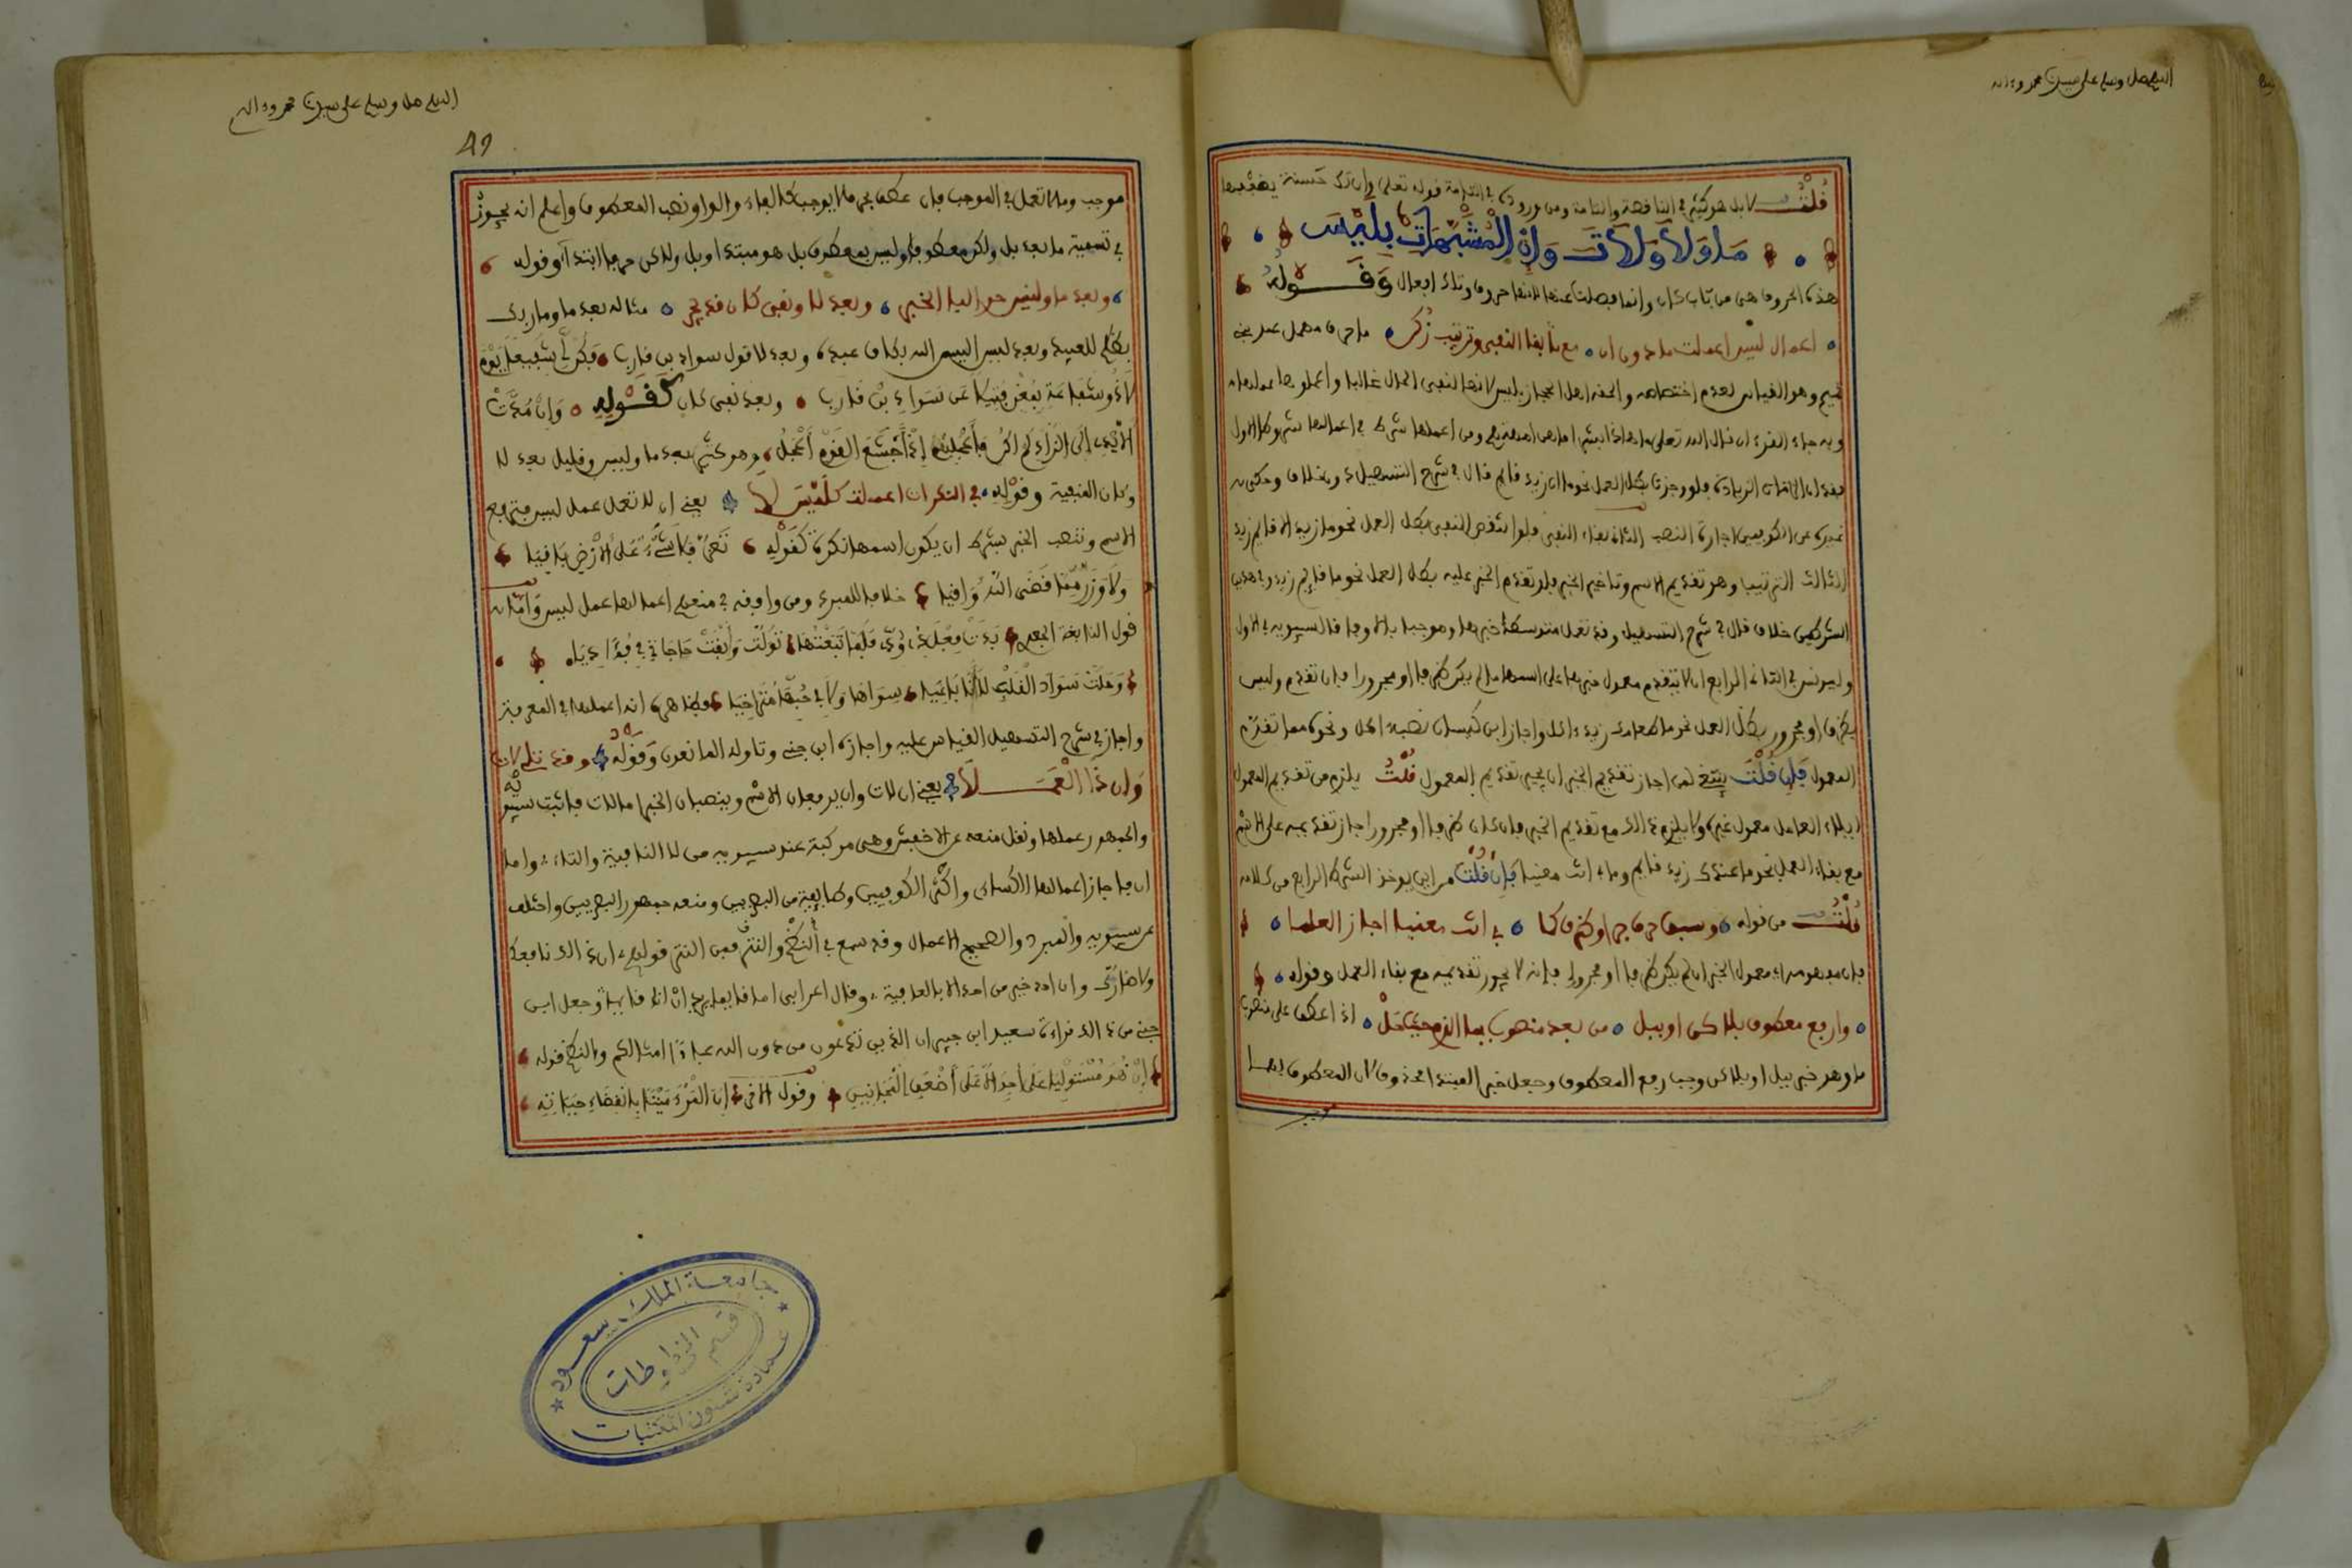 اللهم صل وسلم على سيدنا محمد وءاله
قلت لا بل هو كثير في الناقصة والتامة ومن وروده في التامة قوله تعلى وان تك حسنة يضعفها
ما ولا ولات وان المشبهات بليس
هذه الحروف هي من باب كان وانما فصلت عنها لانها حروف وتلك افعال وقوله
اعمال ليس اعملت ما دون ان مع بقا النفي وترتيب زكن ما حرف مهمل عند بني
تميم وهو القياس لعدم اختصاصه والحقه اهل الحجاز بليس لانها لنفي الحال غالبا واعملوها عملها
وبه جاء القرءان قال الله تعلى ما هذا بشرا ما هن امهتهم ومن اعملها شرط في اعمالها شروطا الاول
فقد ان الزيادة فلو وجدت بطل العمل نحو ما ان زيد قائم قال في شرح التسهيل دون خلاف وحكى
غيره عن الكوفيين اجازة النصب الثاني بقاء النفي فلو انتقض النفي بطل العمل نحو ما زيد الا قائم
الثالث الترتيب وهو تقديم الاسم وتاخير الخبر فلو تقدم الخبر عليه بطل العمل نحو ما قايم زيد وفي هذين
الشرطين خلاف قال في شرح التسهيل وقد تعمل متوسطا خبرها وموجبا بالا وفاقا لسيبويه في الاول
وليونس في الثاني الرابع ان لا يتقدم معمول خبرها على اسمها ما لم يكن ظرفا او مجرورا فان تقدم وليس
بظرف او مجرور بطل العمل نحو ما طعامك زيد ءاكل واجاز ابن كيسان نصب اكل ونحوه مما تقدم
المعمول فان قلت ينبغي لمن اجاز تقديم الخبر ان يجيز تقديم المعمول قلت يلزم من تقديم المعمول
ايلاء العامل معمول غيره ولا يلزم ذالك مع تقديم الخبر فان كان ظرفا او مجرورا جاز تقديمه على الاسم
مع بقاء العمل نحو ما عندك زيد قايم وما بي انت معنيا فان قلت من اين يوخذ الشرط الرابع من كلامه
قلت من قوله وسبق حرف جر او ظرف كما بي انت معنيا اجاز العلما
فان مفهومه ان معمول الخبر ان لم يكن ظرفا او مجرورا فانه لا يجوز تقديمه مع بقاء العمل وقوله
وارفع معطوف بلاكن او ببل من بعد منصوب بما الزم حيث حل اذا عطف على منصوب
ما وهو خبر ببل او بلاكن وجب رفع المعطوف وجعل خبر المبتدا محذوف لان المعطوف بهما
موجب
اللهم صل وسلم على سيدنا محمد وءاله
49
موجب وما لا تعمل في الموجب فان عطف بحرف لا يوجب كالفاء والواو نصب المعطوف واعلم انه يجوز
في تسمية ما بعد بل ولكن معطوفا وليس بمعطوف بل هو مبتدا وبل ولاكن حرفا ابتداء وقوله
وبعد ما وليس جر البا الخبر وبعد لا ونفي كان قد يجر مثاله بعد ما وما ربك
بظلم للعبيد وبعد ليس اليس الله بكاف عبده وبعد لا قول سواد بن قارب فكن لي شفيعا يوم
لا ذو شفاعة بمغن فتيلا عن سواد بن قارب وبعد نفي كان كقوله وان مدت
الايدي الى الزاد لم اكن باعجلهم اذ اجشع القوم اعجل وهو كثير بعد ما وليس وقليل بعد لا
وكان المنفية وقوله في النكرات اعملت كليس لا يعني ان لا تعمل عمل ليس فترفع
الاسم وتنصب الخبر بشرط ان يكون اسمها نكرة كقوله تعز فلا شيء على الارض باقيا
ولا وزر مما قضى الله واقيا خلافا للمبرد ومن وافقه في منعهم اعمالها عمل ليس واما
قول النابغة الجعدي بدت فعل ذي ود فلما تبعتها تولت وابقت حاجتي في فؤاديا
وحلت سواد القلب لا انا باغيا سواها ولا في حبها متراخيا فظاهره انه اعملها في المعرفة
واجاز في شرح التسهيل القياس عليه واجازه ابن جني وتاوله المانعون وقوله وقد تلي لات
وان ذا العملا يعني ان لات وان يرفعان الاسم وينصبان الخبر اما لات فاثبت سيبويه
والجمهور عملها ونقل منعه عن الاخفش وهي مركبة عند سيبويه من لا النافية والتاء واما
ان فاجاز اعمالها الكساى واكثر الكوفيين وطايفة من البصريين ومنعه جمهور البصريين واختلف
عن سيبويه والمبرد والصحيح الاعمال وقد سمع في النظم والنثر فمن النثر قولهم ان ذالك نافعك
ولا ضارك وان احد خير من احد الا بالعافية وقال اعرابى ان قايما يريد ان انا قايما وجعل ابن
جني من ذالك قراءة سعيد ابن جبير ان الذين تدعون من دون الله عبادا امثالكم والنظم قوله
ان هو مستوليا على احد الا على اضعف المجانين وقول الاخر ان المرء ميتا بانقضاء حياته
جامعة الملك سعود
قسم المخطوطات
عمادة شئون المكتبات